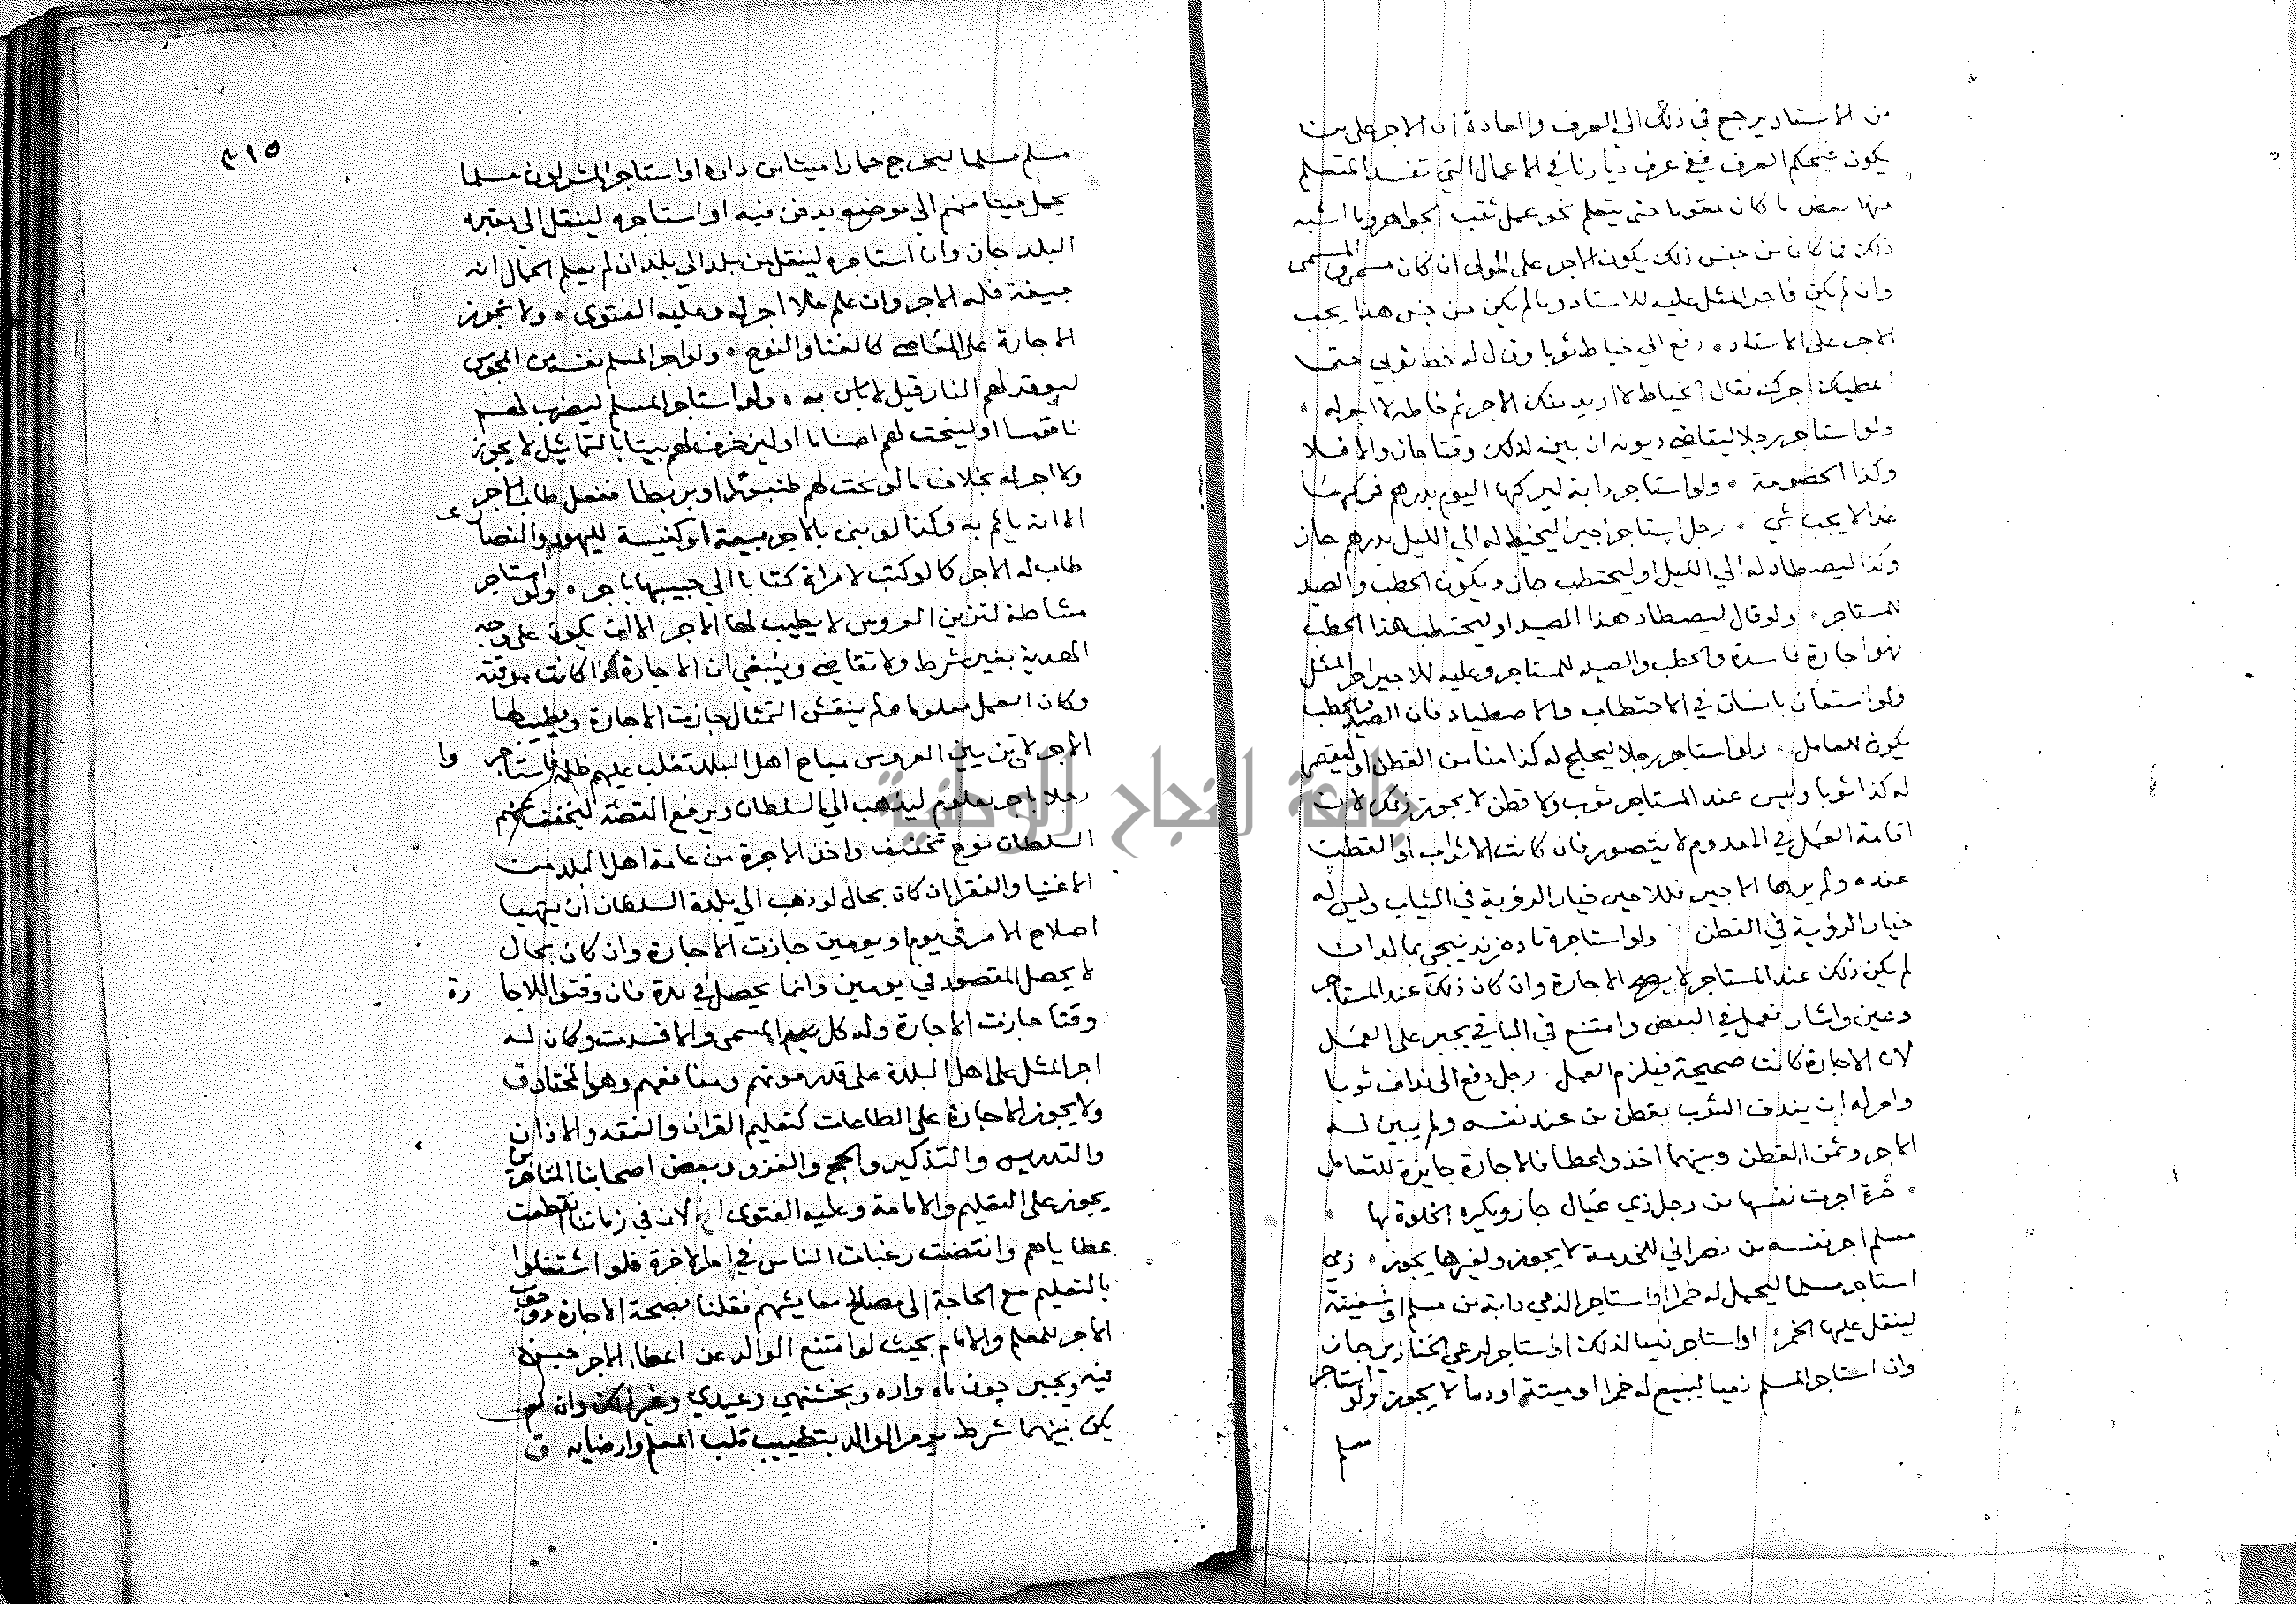 من الاستاد يرجع في ذلك الى العرف والعادة ان الاجر على من
يكون فيحكم العرف ففي عرف ديارنا في الاعمال التي تفسد المتعلم
فيها بعض ما كان متقوما حتى يتعلم نحو عمل ثقب الجواهر وما اشبه
ذلك فما كان من جنس ذلك يكون الاجر على المولى ان كان مسمى فالمسمى
وان لم يكن فاجر المثل عليه للاستاد وما لم يكن من جنس هذا يجب
الاجر على الاستاد ۰ دفع الى خياط ثوبا وقال له خط ثوبي حتى
اعطيك اجرك فقال الخياط لا اريد منك الاجر ثم خاطه لا اجر له ۰
ولو استاجر رجلا ليتقاضى ديونه ان بين لذلك وقتا جاز والا فلا
وكذا الخصومة ۰ ولو استاجر دابة ليركبها اليوم بدرهم فركبها
غدا لا يجب شي ۰ رجل استاجر اجيرا ليخيط له الى الليل بدرهم جاز
وكذا ليصطاد له الى الليل او ليحتطب جاز ويكون الحطب والصيد
للمستاجر ۰ ولو قال ليصطاد هذا الصيد او ليحتطب هذا الحطب
فهو اجارة فاسدة والحطب والصيد للمستاجر وعليه للاجير اجر المثل
ولو استعان بانسان في الاحتطاب والاصطياد فان الصيد والحطب
يكون للعامل ۰ ولو استاجر رجلا ليحلج له كذا منا من القطن او ليقصر
له كذا ثوبا وليس عند المستاجر ثوب ولا قطن لا يجوز ذلك لان
اقامة العمل في المعدوم لا يتصور فان كانت الاثواب او القطن
عنده ولم يرها الاجير فللاجير خيار الرؤية في الثياب وليس له
خيار الرؤية في القطن ولو استاجره تا ده زندنيجي بمالد ان
لم يكن ذلك عند المستاجر لا يصح الاجارة وان كان ذلك عند المستاجر
وعين واشار فعمل في البعض وامتنع في الباقي يجبر على العمل
لان الاجارة كانت صحيحة فيلزم العمل ۰ رجل دفع الى نداف ثوبا
وامر له ان يندف الثوب بقطن من عند نفسه ولم يبين له
الاجر وثمن القطن وبينهما اخذ واعطا فالاجارة جايزة للتعامل
۰ حرة اجرت نفسها من رجل ذي عيال جاز ويكره الخلوة بها ۰
مسلم اجر نفسه من نصراني للخدمة لا يجوز ولغيرها يجوز ۰ ذمي
استاجر مسلما ليحمل له خمرا او استاجر الذمي دابة من مسلم او سفينة
لينقل عليها الخمر او استاجر ذميا لذلك او استاجر لرعي الخنازير جاز
وان استاجر المسلم ذميا ليبيع له خمرا او ميتة او دما لا يجوز ولو استاجر
مسلم
٣١٥
مسلم مسلما ليخرج حمارا ميتا من داره او استاجر المشركون مسلما
يحمل ميتا منهم الى موضع يدفن فيه او استاجره لينقل الى مقبرة
البلد جاز وان استاجره لينقل من بلد الى بلد ان لم يعلم الحمال انه
جيفة فله الاجر وان علم فلا اجر له وعليه الفتوى ۰ ولا تجوز
الاجارة على المعاصي كالغنا والنوح ۰ ولو اجر المسلم نفسه من المجوس
ليوقد لهم النار قيل لا باس به ۰ ولو استاجر المسلم ليضرب لهم
ناقوسا او لينحت لهم اصناما او ليزخرف لهم بيتا بالتماثيل لا يجوز
ولا اجر له بخلاف ما لو نحت لهم طنبورا او بربطا ففعل طاب الاجر
الا انه ياثم به وكذا لو بنى بالاجر بيعة او كنيسة لليهود والنصارى
طاب له الاجر كما لو كتب لامراة كتابا الى حبيبها باجر ۰ ولو استاجر
مشاطة لتزين العروس لا يطيب لها الاجر الا ان يكون على وجه
الهدية بغير شرط ولا تقاضي وينبغي ان الاجارة اذا كانت موقتة
وكان العمل معلوما ولم ينقش التمثال جازت الاجارة ويطيب لها
الاجر لان تزيين العروس مباح اهل البلد تغلب عليهم ظلمة فاستاجروا
رجلا باجر معلوم ليذهب الى السلطان ويرفع القصة ليخفف عنهم
السلطان نوع تخفيف واخذ الاجرة من عامة اهل البلد من
الاغنيا والفقرا ان كان بحال لو ذهب الى بلدة السلطان ان يتهيا
اصلاح الامر في يوم او يومين جازت الاجارة وان كان بحال
لا يحصل المقصود في يومين وانما يحصل في مدة فان وقتوا للاجارة
وقتا جازت الاجارة وله كل المسمى والا فسدت وكان له
اجر المثل على اهل البلدة على قدر مونهم ومنافعهم وهو المختار ق
ولا يجوز الاجارة على الطاعات كتعليم القران والفقه والاذان
والتدريس والتذكير والحج والغزو وبعض اصحابنا المتاخرين
يجوز على التعليم والامامة وعليه الفتوى لان في زماننا انقطعت
عطاياهم وانتقضت رغبات الناس في امر الاخرة فلو اشتغلوا
بالتعليم مع الحاجة الى مصالح معايشهم فقلنا بصحة الاجارة ووجوب
الاجر للمعلم والامام بحيث لو امتنع الوالد عن اعطا الاجر حبس
فيه ويجبر چون ماه واره وبخشنهي وعيدي وغير ذلك وان لم
يكن بينهما شرط يومر الوالد بتطييب قلب المعلم وارضايه ق
جامعة النجاح الوطنية